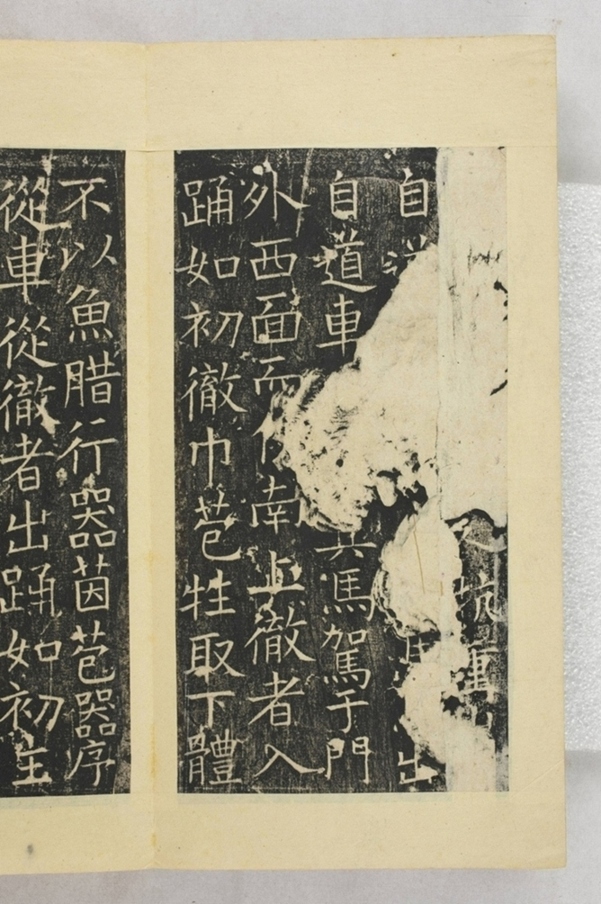 抗重
自道出
自道車其馬駕于門
外西面而南上徹者入
踊如初徹巾苞牲取下體
不以魚腊行器茵苞器序
從車從徹者出踊如初主